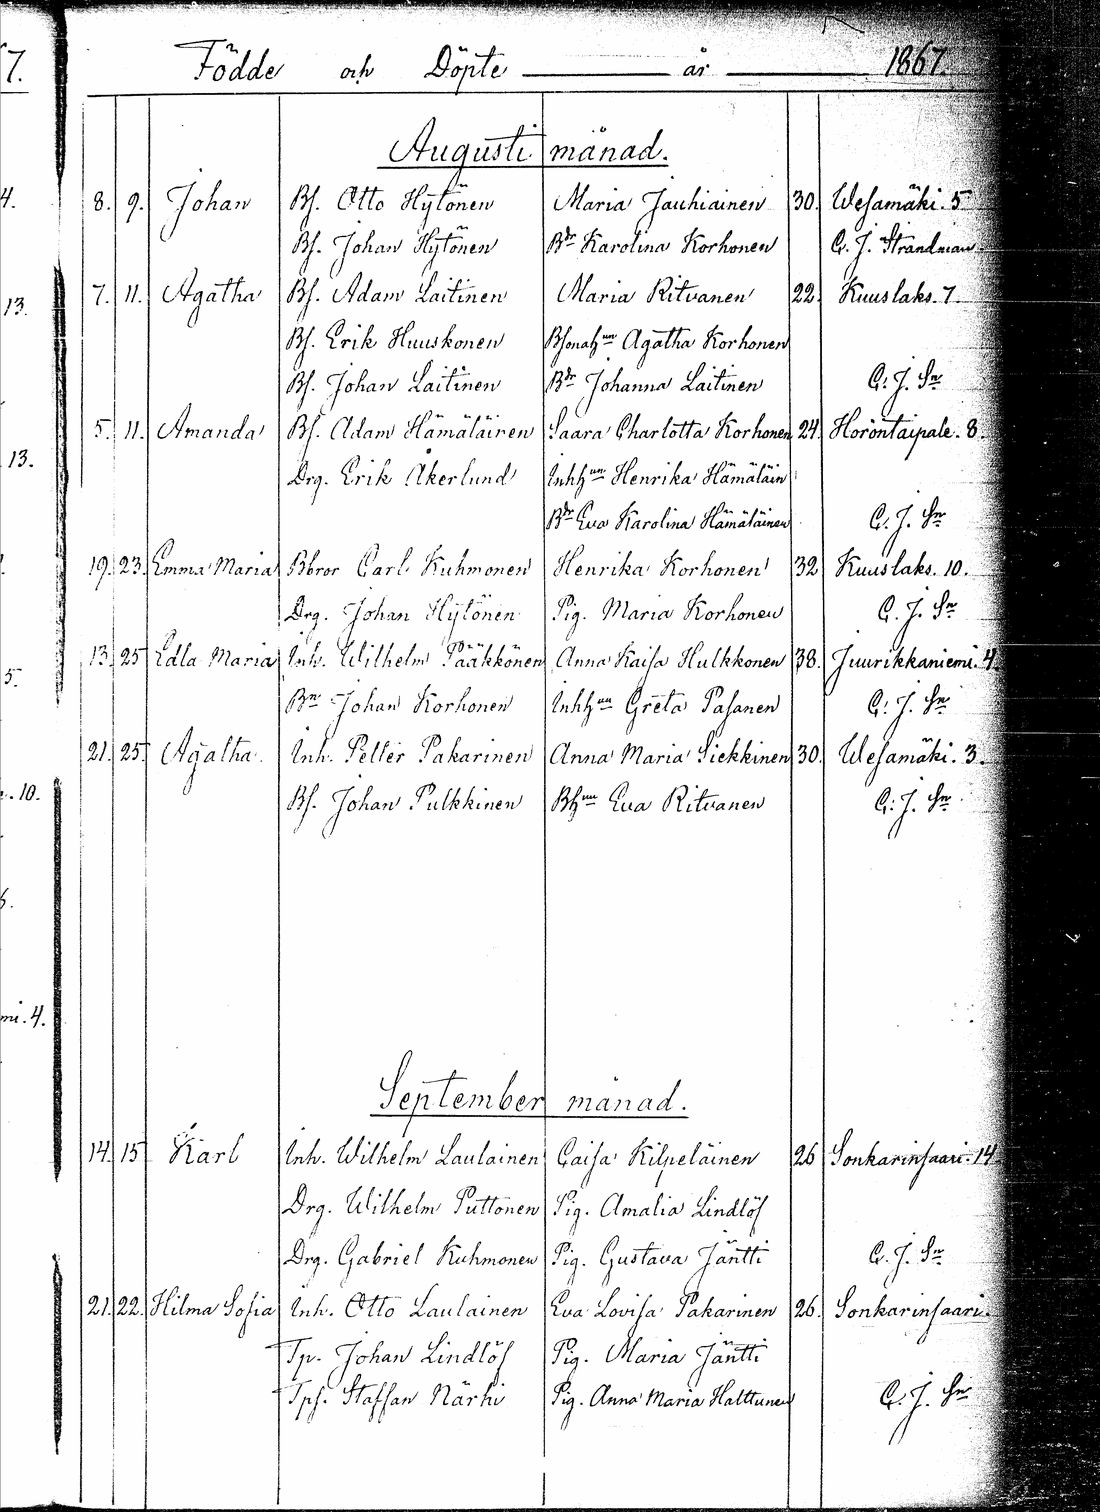 7.
Födde och Döpte år 1867.
Augusti månad.
4.
8. 9. Johan Bf. Otto Hytönen Maria Jauhiainen 30. Wesamäki. 5
Bf. Johan Hytönen Bdr Karolina Korhonen C. J. Strandman
13.
7. 11. Agatha Bf. Adam Laitinen Maria Ritvanen 22. Kuuslaks. 7.
Bf. Erik Huuskonen Bfonahun Agatha Korhonen
Bf. Johan Laitinen Bdr Johanna Laitinen C. J. Sn
5. 11. Amanda Bf. Adam Hämäläinen Saara Charlotta Korhonen 24. Horontaipale. 8.
13.
Drg. Erik Åkerlund Inhhun Henrika Hämäläin
Bdr Eva Karolina Hämäläinen C. J. Sn
19. 23. Emma Maria Bbror Carl Kuhmonen Henrika Korhonen 32 Kuuslaks. 10.
Drg. Johan Hytönen Pig. Maria Korhonen C. J. Sn
13. 25 Edla Maria Inh. Wilhelm Pääkkönen Anna Kaisa Hulkkonen 38. Juurikkaniemi. 4.
5.
Bn Johan Korhonen Inhhun Greta Pasanen C. J. Sn
21. 25 Agatha. Inh. Petter Pakarinen Anna Maria Siekkinen 30. Wesamäki. 3.
10.
Bf. Johan Pulkkinen Bhun Eva Ritvanen C. J. Sn
mi. 4.
September månad.
14. 15 Karl Inh. Wilhelm Laulainen Caisa Kilpeläinen 26 Sonkarinsaari. 14.
Drg. Wilhelm Puttonen Pig. Amalia Lindlöf
Drg. Gabriel Kuhmonen Pig. Gustava Jäntti C. J. Sn
21. 22. Hilma Sofia Inh. Otto Laulainen Eva Lovisa Pakarinen 26. Sonkarinsaari.
Tp. Johan Lindlöf Pig. Maria Jäntti
Tpf. Staffan Närhi Pig. Anna Maria Halttunen C. J. Sn